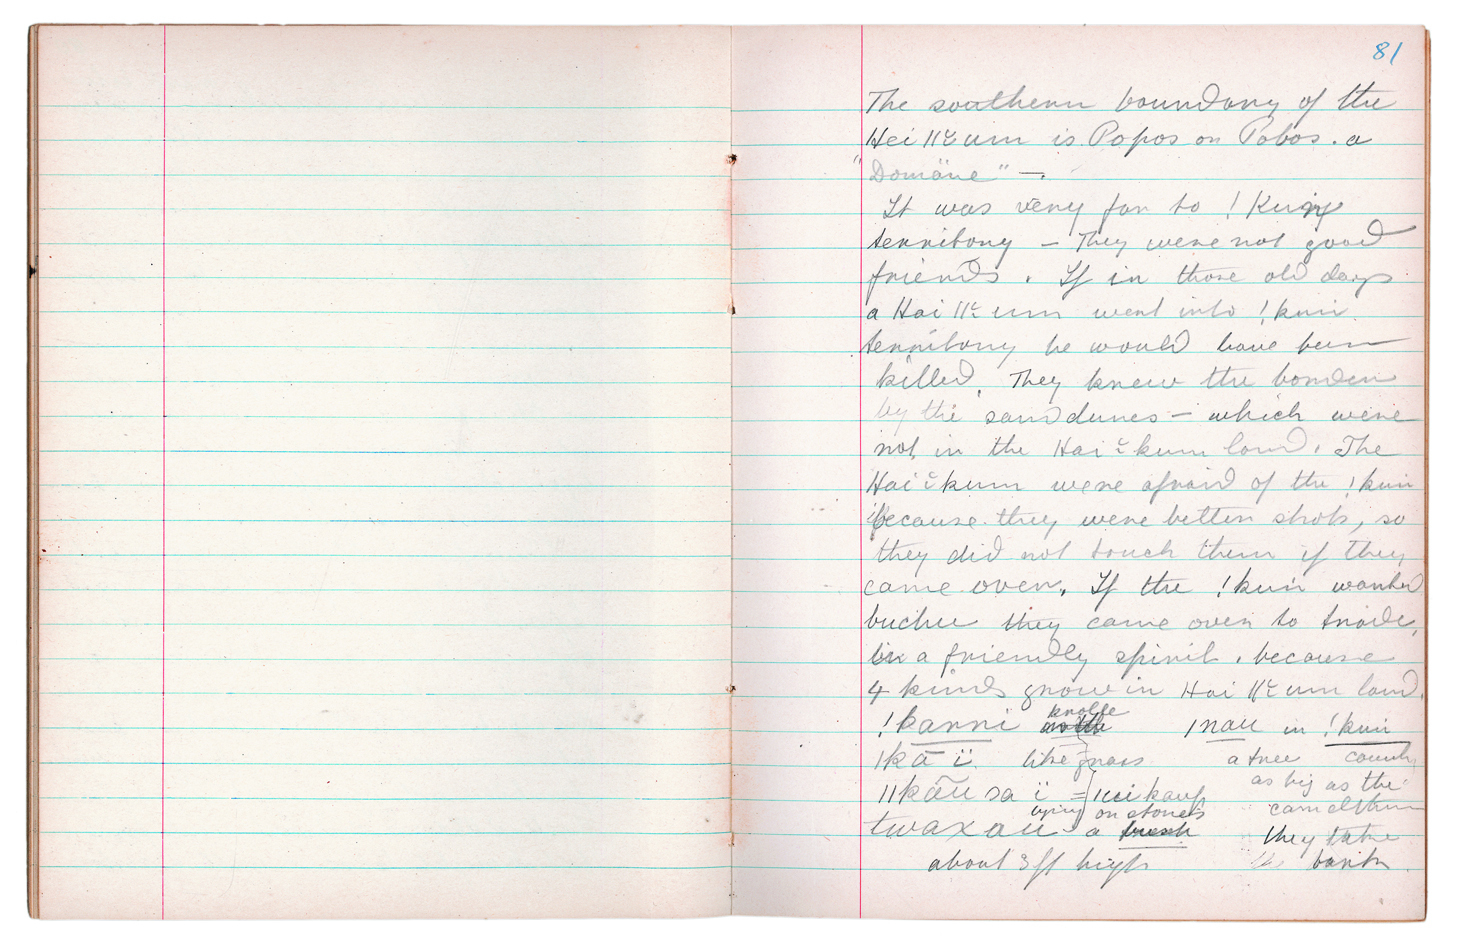 81
The southern boundary of the
Hei ǁʿum is Popos or Pobos. a
"Domäne" —.
It was very far to !Kung
territory — They were not good
friends. If in those old days
a Hai ǁʿ um went into !kun
territory he would have been
killed. They knew the border
by the sanddunes — which were
not in the Hai ʿkum land. The
Haiʿkum were afraid of the !kun
because they were better shots, so
they did not touch them if they
came over. If the !kun wanted
buchu they came over to trade,
in a friendly spirit. because
4 kinds grow in Hai ǁʿ um land.
!kanni knolle ǀnau in !kun
ǀkā ï like grass a tree country
ǁkāu sa ï = as big as the
on stones camelthorn
twaxau a bush they take
about 3 ft high bark